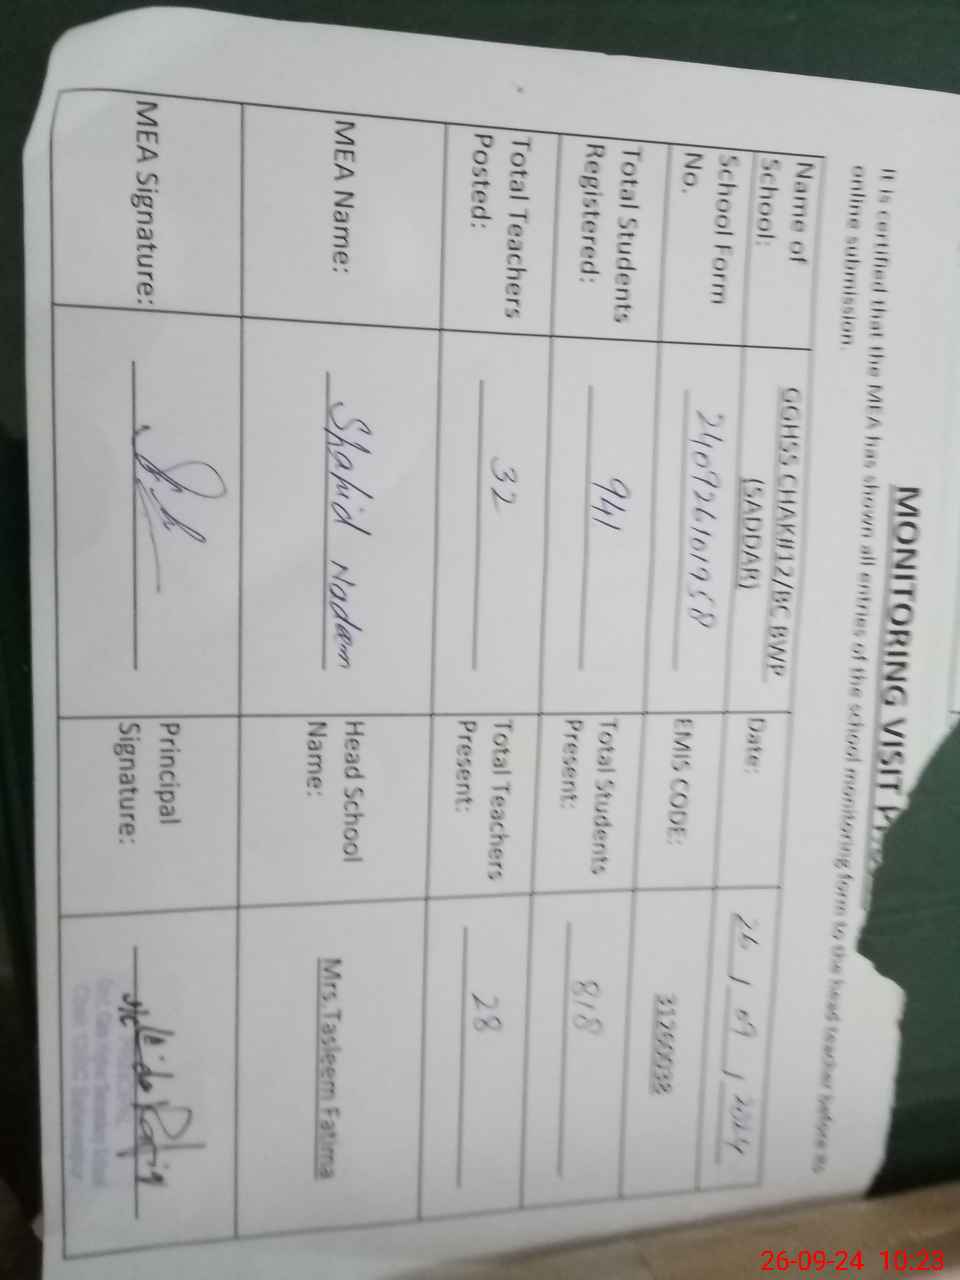 MONITORING VISIT
It is certified that the MEA has shown all entries of the school monitoring form to the head teacher before its
online submission.
Name of School: GGHSS CHAK#12/BC BWP (SADDAR) Date: 26 / 09 / 2024
School Form No. 240926101958 EMIS CODE:
Total Students Registered: 941 Total Students Present: 818
Total Teachers Posted: 32 Total Teachers Present: 28
MEA Name: Shahid Nadeem Head School Name: Mrs.Tasleem Fatima
MEA Signature: Principal Signature:
26-09-24 10:23